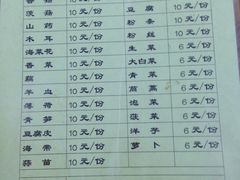 茨菇 10元/份 豆腐 10元/份
山药 10元/份 粉条 10元/份
木耳 10元/份 粉丝 10元/份
海菜花 10元/份 生菜 6元/份
香菜 10元/份 大白菜 6元/份
藕 10元/份 青菜 6元/份
羊血 10元/份 茼蒿 6元/份
薄荷 10元/份 泡菜 6元/份
青笋 10元/份 菠菜 6元/份
豆腐皮 10元/份 洋芋 6元/份
海带 10元/份 萝卜 6元/份
蒜苗 10元/份